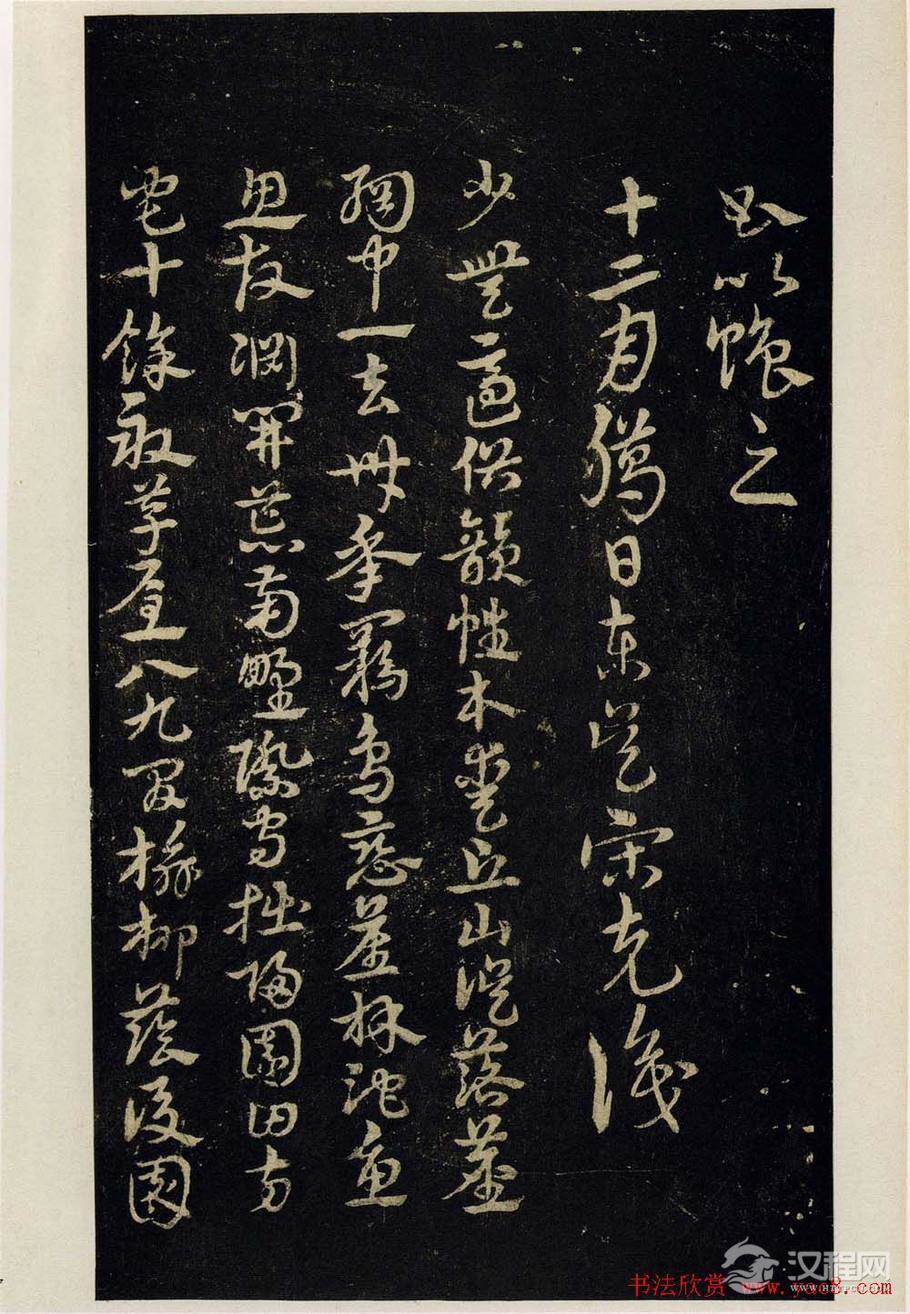 書以之
十二月臈日東吳宋克識
少無適俗韻性本愛丘山誤落塵
網中一去卅年羈鳥戀舊林池魚
思故淵開荒南野際守拙歸園田方
宅十餘畝草屋八九間榆柳蔭後園
汉程网
书法欣赏 www.yac8.com